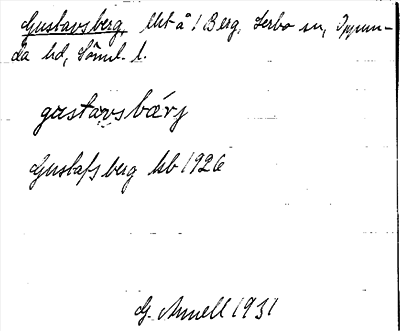 Gustavsberg, lht å 1 Berg, Lerbo sn, Oppun-
da hd, Söml. l.
gustavsbærj
Gustafsberg kb 1926
G. Annell 1931